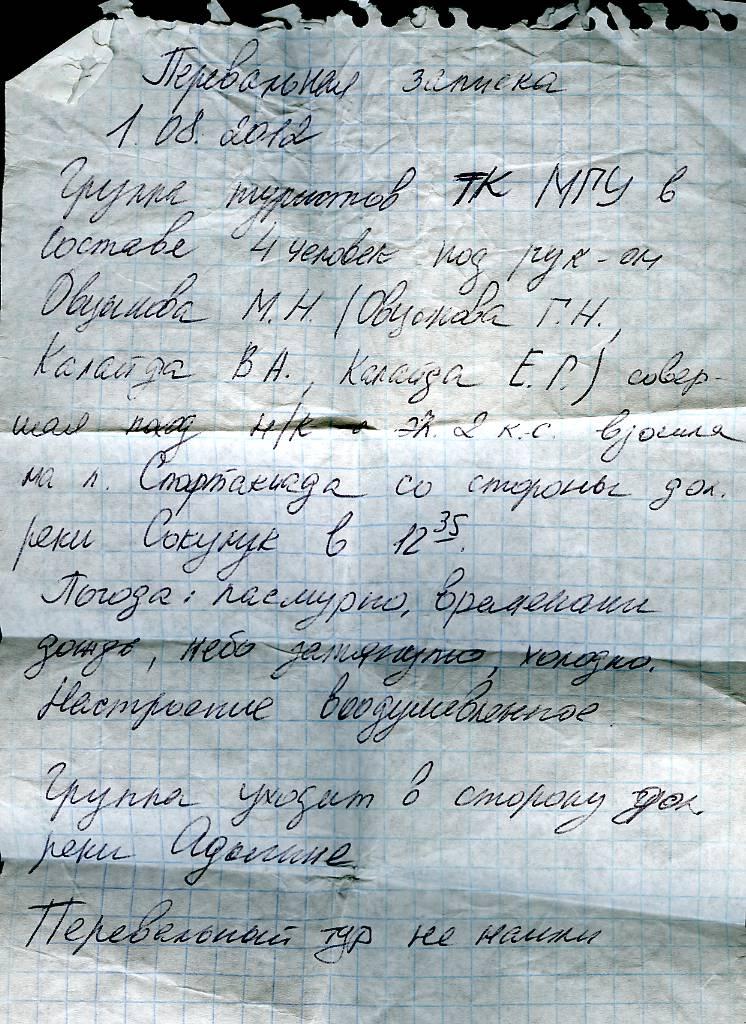 Перевальная записка
1.08.2012
Группа туристов ТК МГУ в
составе 4 человек под рук-ом
Овчинова М.Н. (Овчинова Г.Н.,
Калайда В.А., Калайда Е.Г.) совер-
шая поход н/к эл. 2 к.с. взошла
на п. Спартакиада со стороны дол.
реки Сокулук в 12 35.
Погода: пасмурно, временами
дождь, небо затянуто, холодно.
Настроение воодушевленное.
Группа уходит в сторону дол.
реки Адыгине.
Перевальный тур не нашли